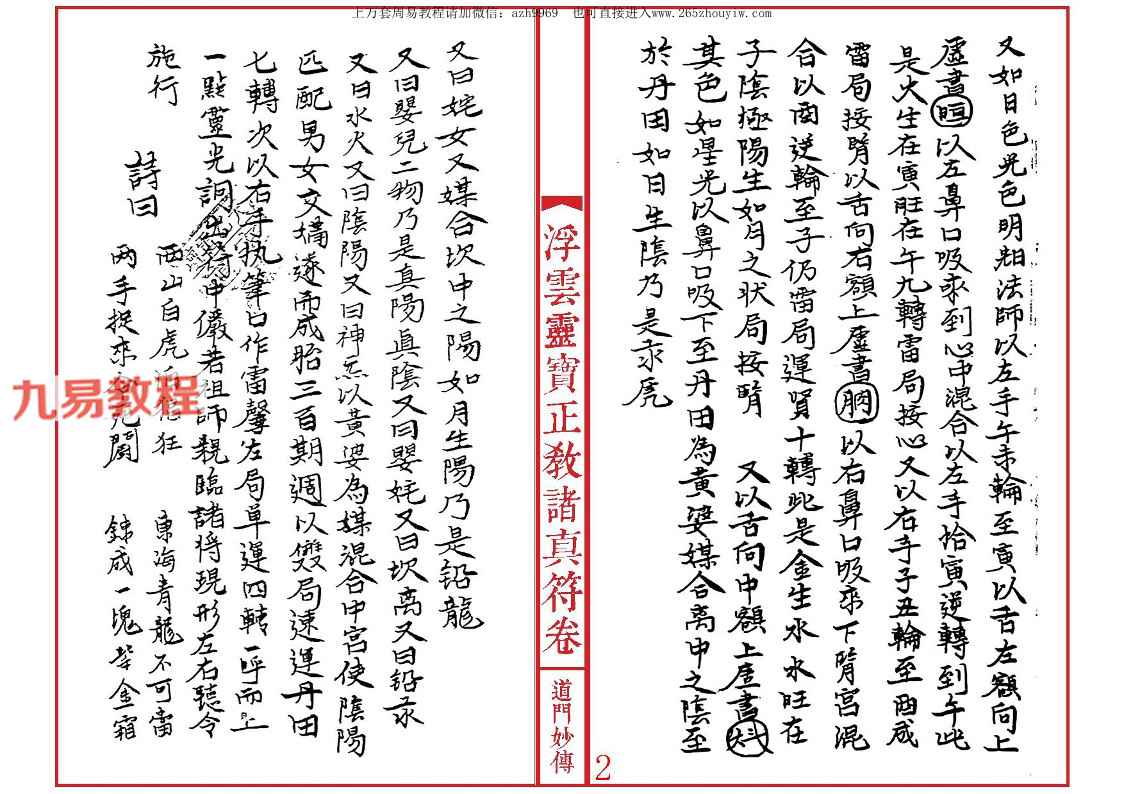 上万套周易教程请加微信：azh9969 也可直接进入www.265zhouyiw.com
又如日色光色明粗法師以左手午未輪至寅以舌左額向上
虛書 以左鼻口吸汞到心中混合以左手恰寅逆轉到午此
是火生在寅旺在午九轉雷局按心又以右手子丑輪至酉戌
雷局按腎以舌向右額上虛書 以右鼻口吸來下腎宮混
合以酉逆輪至子仍雷局運腎十轉此是金生水水旺在
子陰極陽生如月之狀局按腎 又以舌向中額上虛書
其色如星光以鼻口吸下至丹田為黃婆媒合离中之陰至
於丹田如日生陰乃是汞虎
浮雲靈寶正教諸真符卷
道門妙傳
2
又曰姹女又媒合坎中之陽如月生陽乃是铅龍
又曰嬰兒二物乃是真陽真陰又曰嬰姹又曰坎离又曰铅汞
又曰水火又曰陰陽又曰神炁以黃婆為媒混合中宮使陰陽
匹配男女交媾遂而成胎三百期週以雙局速運丹田
七轉次以右手执筆口作雷聲左局单運四轉一呼而上
一點靈光 中儼若祖師親臨諸将現形左右聽令
施行
詩曰
西山白虎 狂 東海青龍不可當
两手捉來 鬪 錬成一塊紫金霜
九易教程